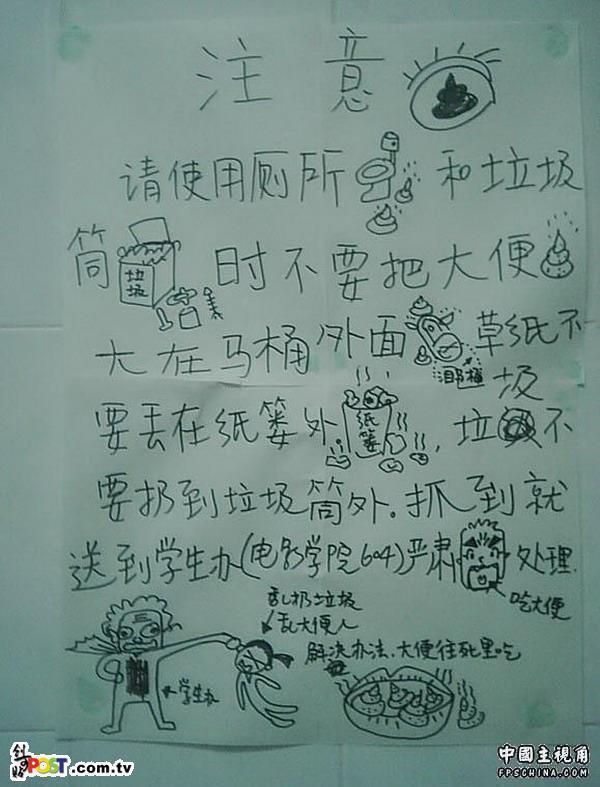 注意
请使用厕所和垃圾
筒垃圾时不要把大便
大在马桶外面草纸不
马桶
要丢在纸篓外.纸篓,垃圾不
要扔到垃圾筒外.抓到就
送到学生办(电影学院604)严肃处理.
吃大便
乱扔垃圾
乱大便人
解决办法、大便往死里吃
学生办
POST.com.tv
中國主視角
FPSCHINA.COM